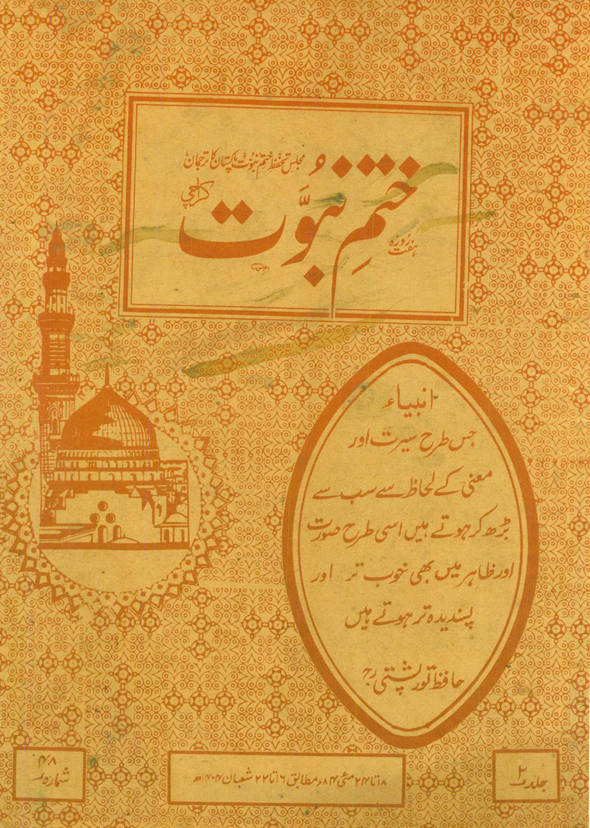 مجلس تحفظ ختم نبوت پاکستان کا ترجمان
ہفت روزہ
ختمِ نبوّت
کراچی
انبیاء
جس طرح سیرت اور
معنی کے لحاظ سے سب سے
بڑھ کر ہوتے ہیں اسی طرح صورت
اور ظاہر میں بھی خوب تر اور
پسندیدہ تر ہوتے ہیں
حافظ تورپشتی رح
جلد ۲
۱۸ تا ۲۴ مئی ۸۴ء مطابق ۱۶ تا ۲۲ شعبان ۱۴۰۴ھ
شمارہ ۴۸